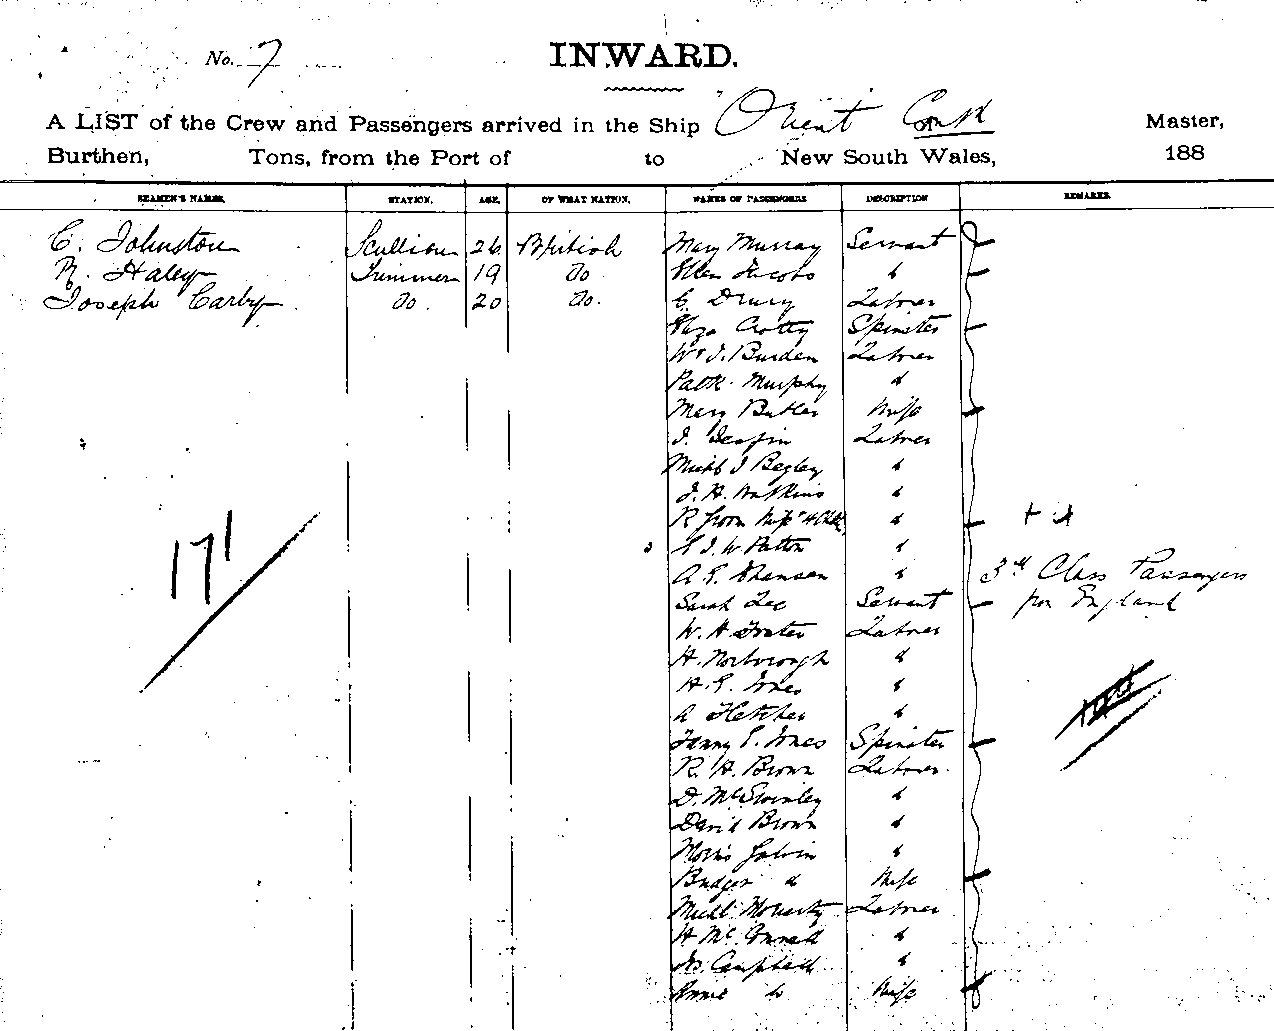 No. 7
INWARD.
A LIST of the Crew and Passengers arrived in the Ship "Orient Contd Master,
Burthen, Tons, from the Port of to New South Wales, 188
SEAMEN'S NAMES. STATION. AGE. OF WHAT NATION. NAMES OF PASSENGERS DESCRIPTION REMARKS.
C. Johnston Scullion 26 British Mary Murray Servant
R. Haley Trimmer 19 do Ellen Jacobs "
Joseph Carby do. 20 do. C. Drury Labrer
Eliza Crotty Spinster
Wm J. Burden Labrer
Patk. Murphy "
Mary Butler Wife
J. Labrer
Michl J Begley "
J. H. Watkins "
R Wife "
J. W. Patton "
A. E. "
3rd Class Passengers
Sarah Lee Servant
from England
W. H. Labrer
H. Norborough "
H. E. Jones "
A Fletcher "
171
Fanny E. Jones Spinster
R. H. Brown Labrer
D. "
David Brown "
Morris Galvin "
Bridget " Wife
Michl Moriarty Labrer
H Mc "
Js. Campbell "
Annie do Wife